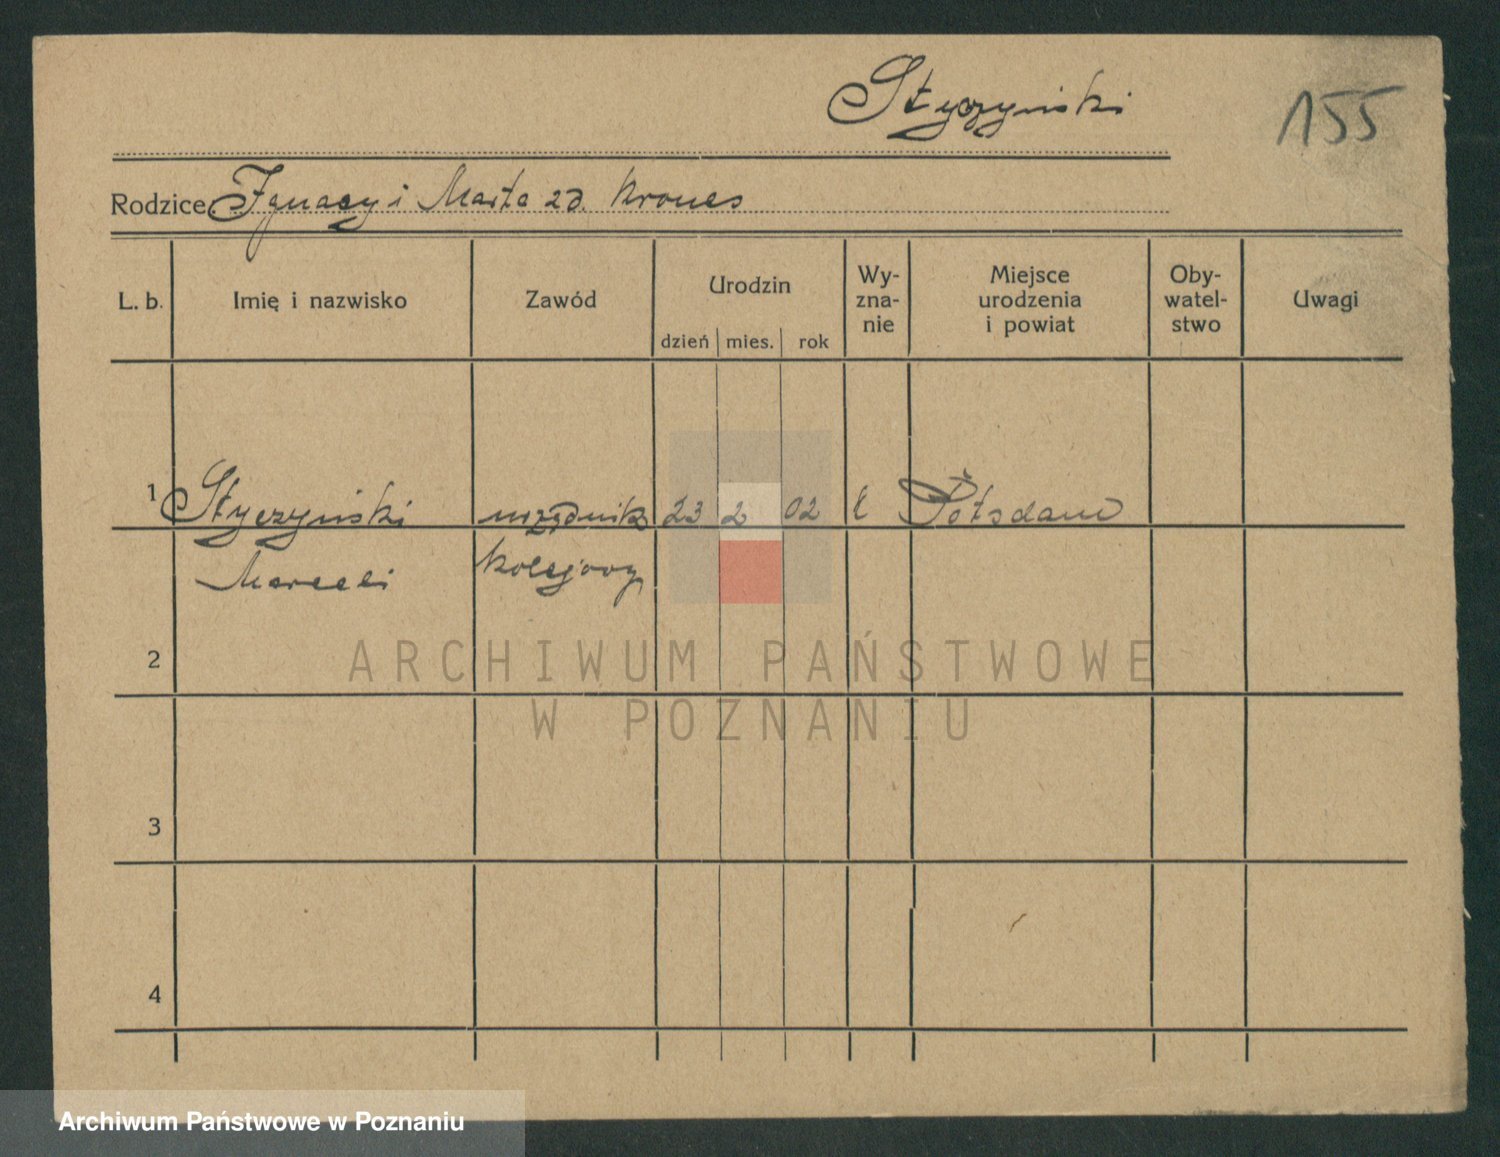 Styczyński
155
Rodzice Ignacy i Marta zd. Krones
L. b. Imię i nazwisko Zawód Urodzin dzień mies. rok Wy-zna-nie Miejsce urodzenia i powiat Oby-watel-stwo Uwagi
1 Styczyński urzędnik 23 2 02 Potsdam
Marceli kolejowy
2
ARCHIWUM PAŃSTWOWE
W POZNANIU
3
4
Archiwum Państwowe w Poznaniu